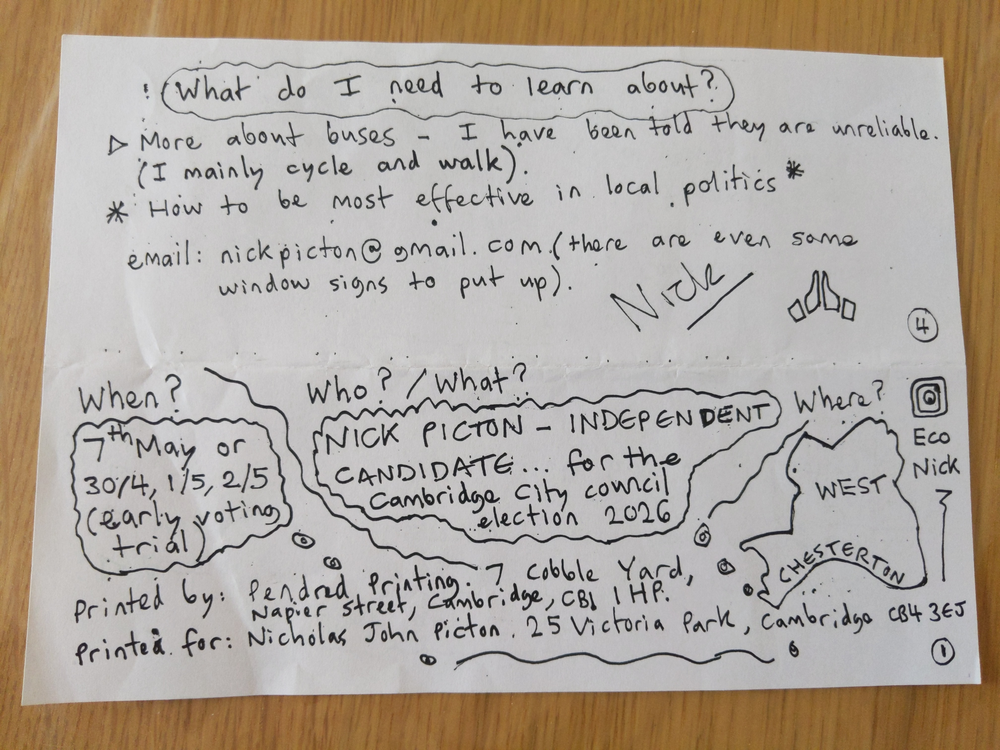 ! What do I need to learn about?
▷ More about buses - I have been told they are unreliable.
(I mainly cycle and walk).
* How to be most effective in local politics *
email: nickpicton@gmail.com. (there are even some
window signs to put up).
Nick
4
When?
7th May or
30/4, 1/5, 2/5
(early voting
trial)
Who? / What?
NICK PICTON - INDEPENDENT
CANDIDATE... for the
Cambridge City council
election 2026
Where?
WEST
CHESTERTON
Eco
Nick
Printed by: Pendred Printing. 7 Cobble Yard,
Napier Street, Cambridge, CB1 1HP.
Printed for: Nicholas John Picton. 25 Victoria Park, Cambridge CB4 3EJ
1